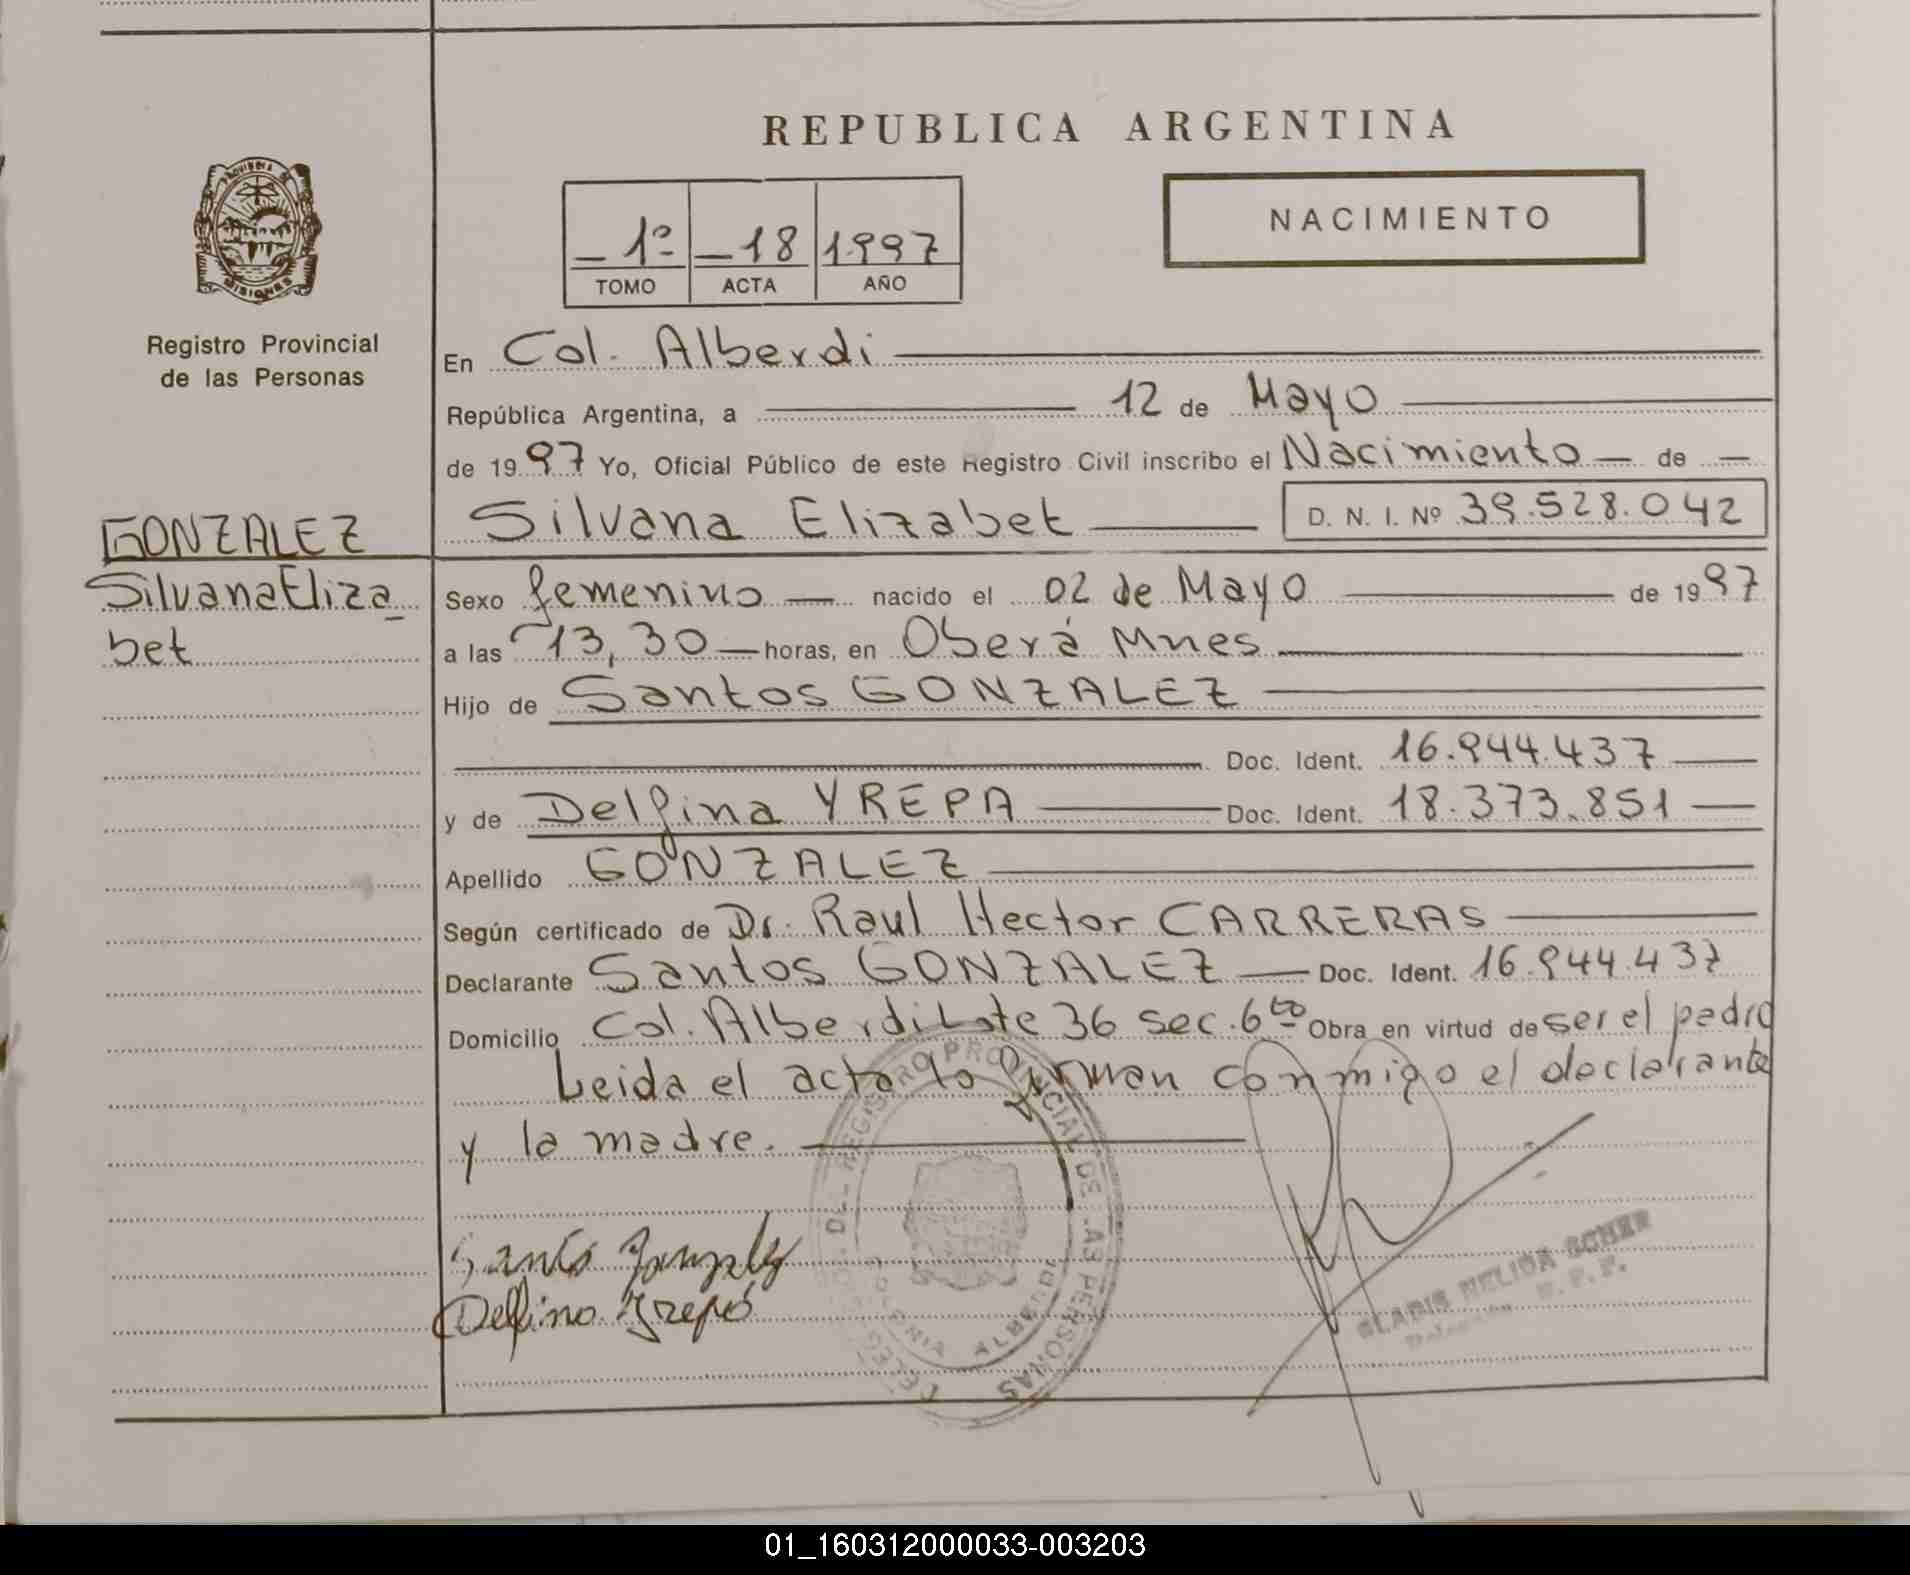 REPUBLICA ARGENTINA
NACIMIENTO
1º 18 1997
TOMO ACTA AÑO
PROVINCIA DE MISIONES
Registro Provincial
de las Personas
En Col. Alberdi
República Argentina, a 12 de Mayo
de 1997 Yo, Oficial Público de este Registro Civil inscribo el Nacimiento de
Silvana Elizabet D. N. I. Nº 39.528.042
GONZALEZ
Silvana Eliza
bet
Sexo femenino nacido el 02 de Mayo de 1997
a las 13,30 horas, en Oberá Mnes
Hijo de Santos GONZALEZ
Doc. Ident. 16.944.437
y de Delfina YREPA Doc. Ident. 18.373.851
Apellido GONZALEZ
Según certificado de Dr. Raul Hector CARRERAS
Declarante Santos GONZALEZ Doc. Ident. 16.944.437
Domicilio Col. Alberdi Lote 36 sec. 6to Obra en virtud de ser el padre
Leida el acta lo firman conmigo el declarante
y la madre.
REGISTRO PROVINCIAL DE LAS PERSONAS
COLONIA ALBERDI
GLADIS NELIDA
01_160312000033-003203